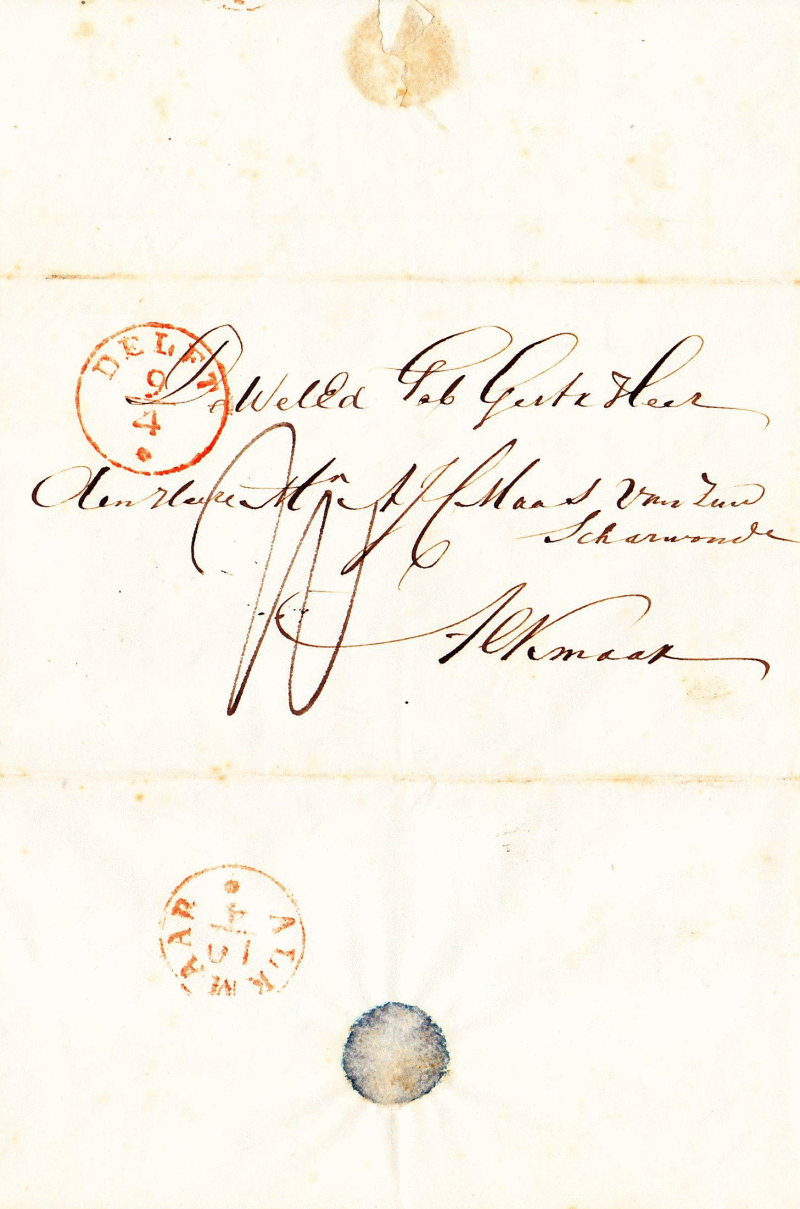 DELFT
9
4
De WelEd Geb Gestr Heer
den Heere Mr A J C Maas van Zuid
Scharwoude
Alkmaar
ALKMAAR
10
4